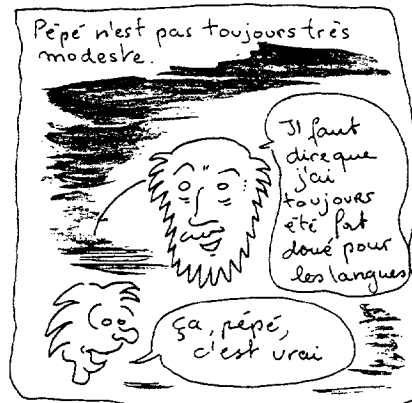 Pépé n'est pas toujours très
modeste.
Il faut
dire que
j'ai
toujours
été fort
doué pour
les langues
ça, pépé,
c'est vrai